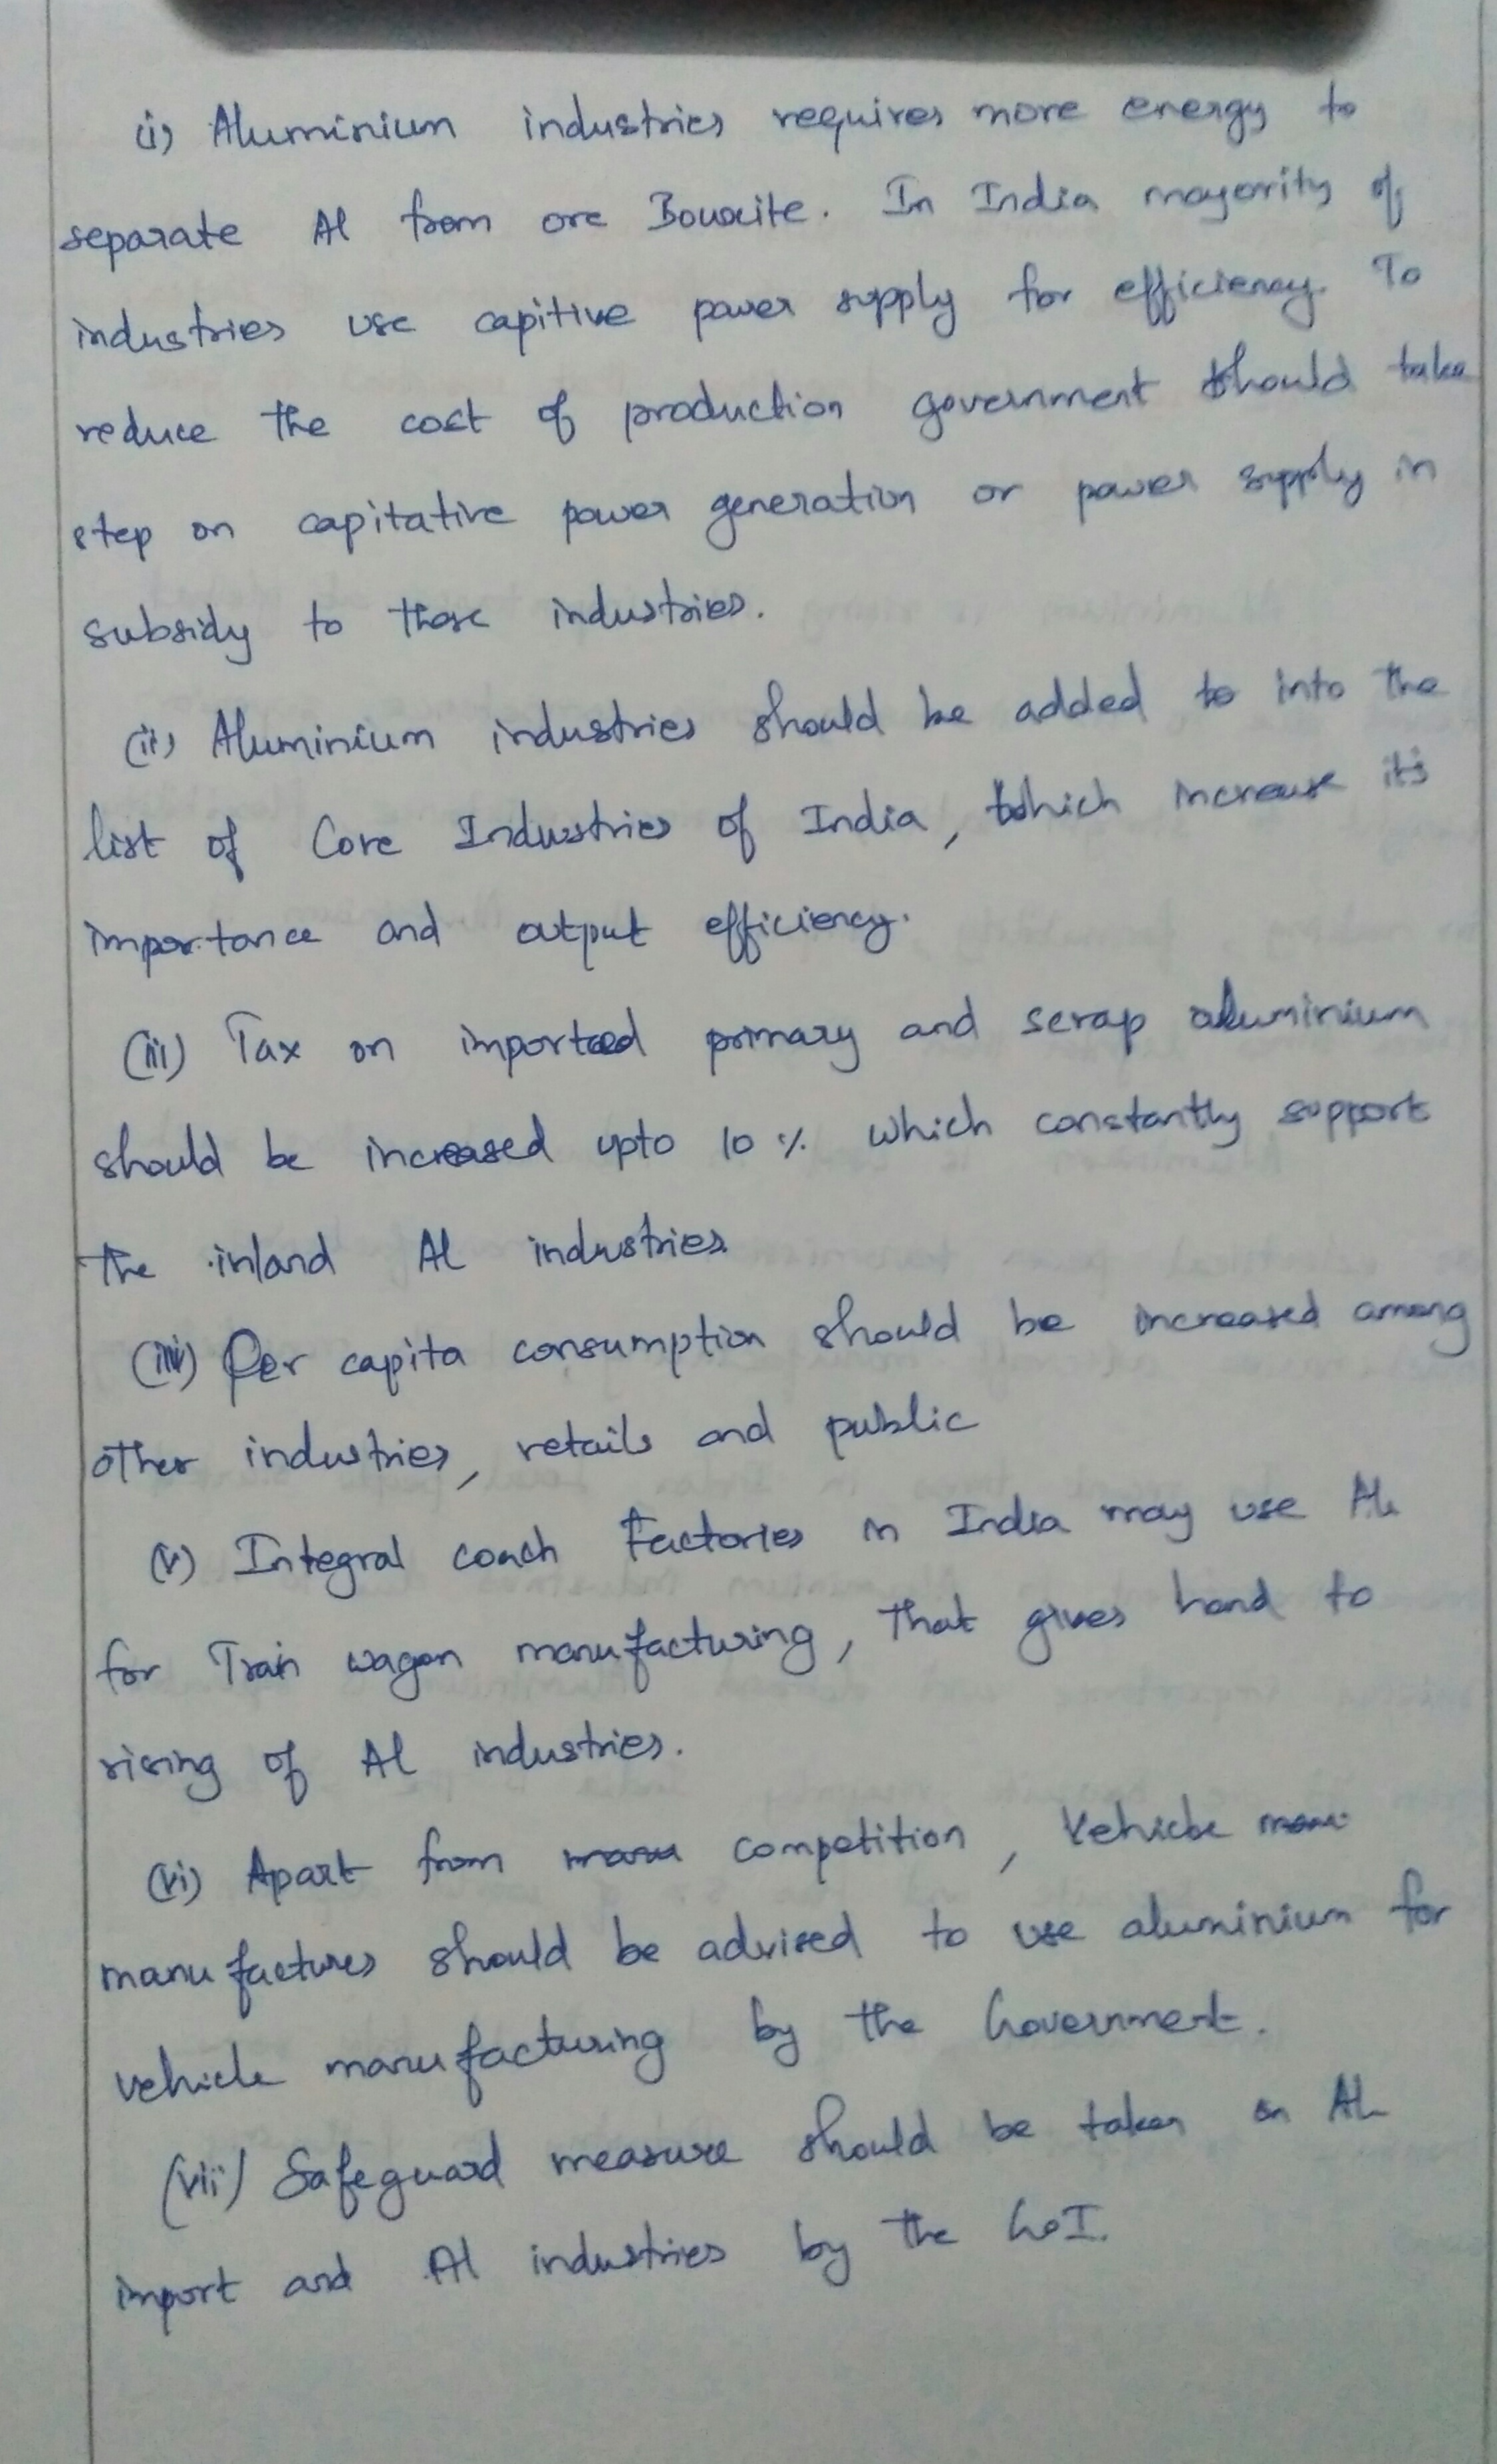 (i) Aluminium industries requires more energy to
separate Al from ore Bouxite. In India mayority of
industries use capitive power supply for efficiency. To
reduce the cost of production government should take
step on capitative power generation or power supply in
subsidy to those industries.
(ii) Aluminium industries should be added to into the
list of Core Industries of India, which increase it's
importance and output efficiency.
(iii) Tax on imported primary and scrap aluminium
should be increased upto 10 % which constantly support
the inland Al industries
(iiii) Per capita consumption should be increased among
other industries, retails and public
(v) Integral coach Factories in India may use Al
for Train wagon manufacturing, that gives hand to
rising of Al industries.
(vi) Apart from competition, Vehicle
manufactures should be advised to use aluminium for
vehicle manufacturing by the Government.
(vii) Safeguard measure should be taken on Al
import and Al industries by the GoI.